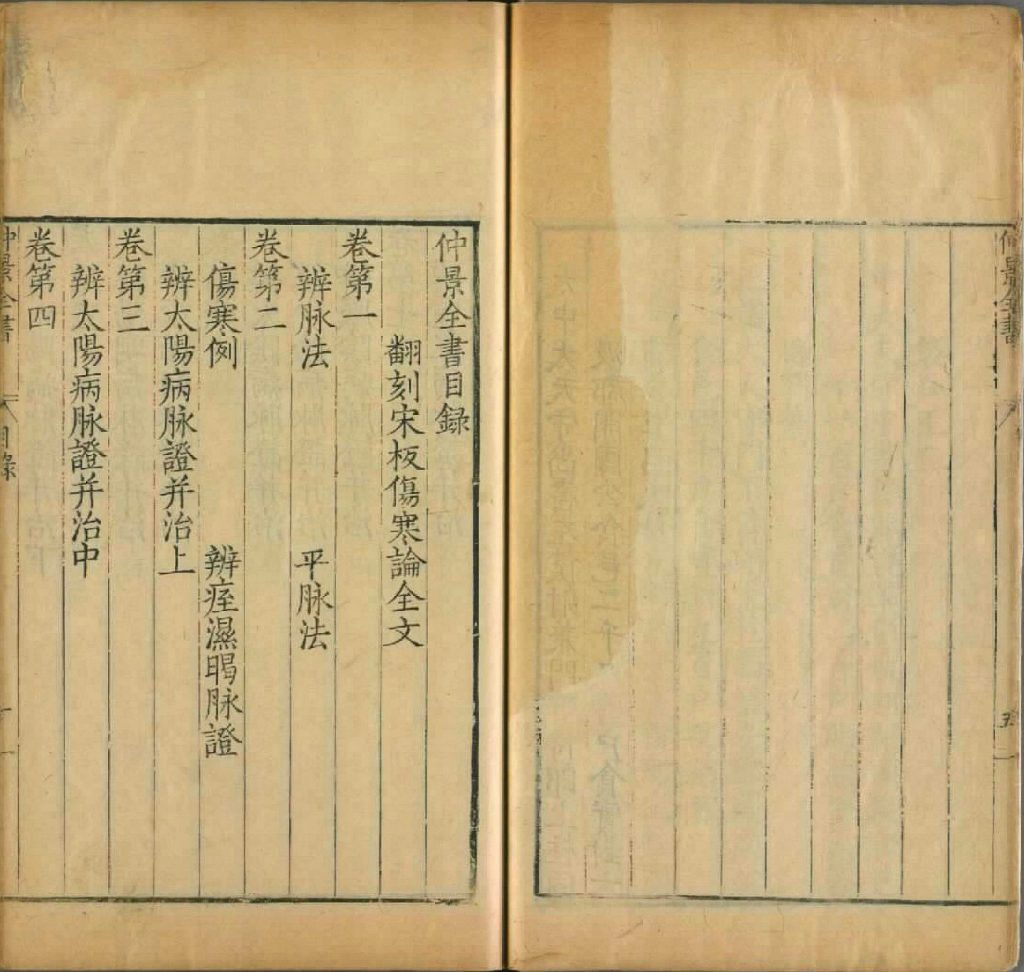 仲景全書
五
仲景全書目録
翻刻宋板傷寒論全文
卷第一
辨脉法 平脉法
卷第二
傷寒例 辨痓濕暍脉證
辨太陽病脉證并治上
卷第三
辨太陽病脉證并治中
卷第四
仲景全書 目錄 一